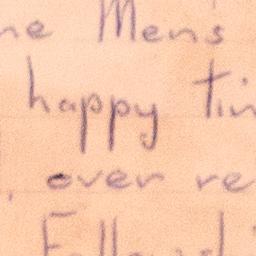 ne Men's
happy tin
, over re
Fellowshi